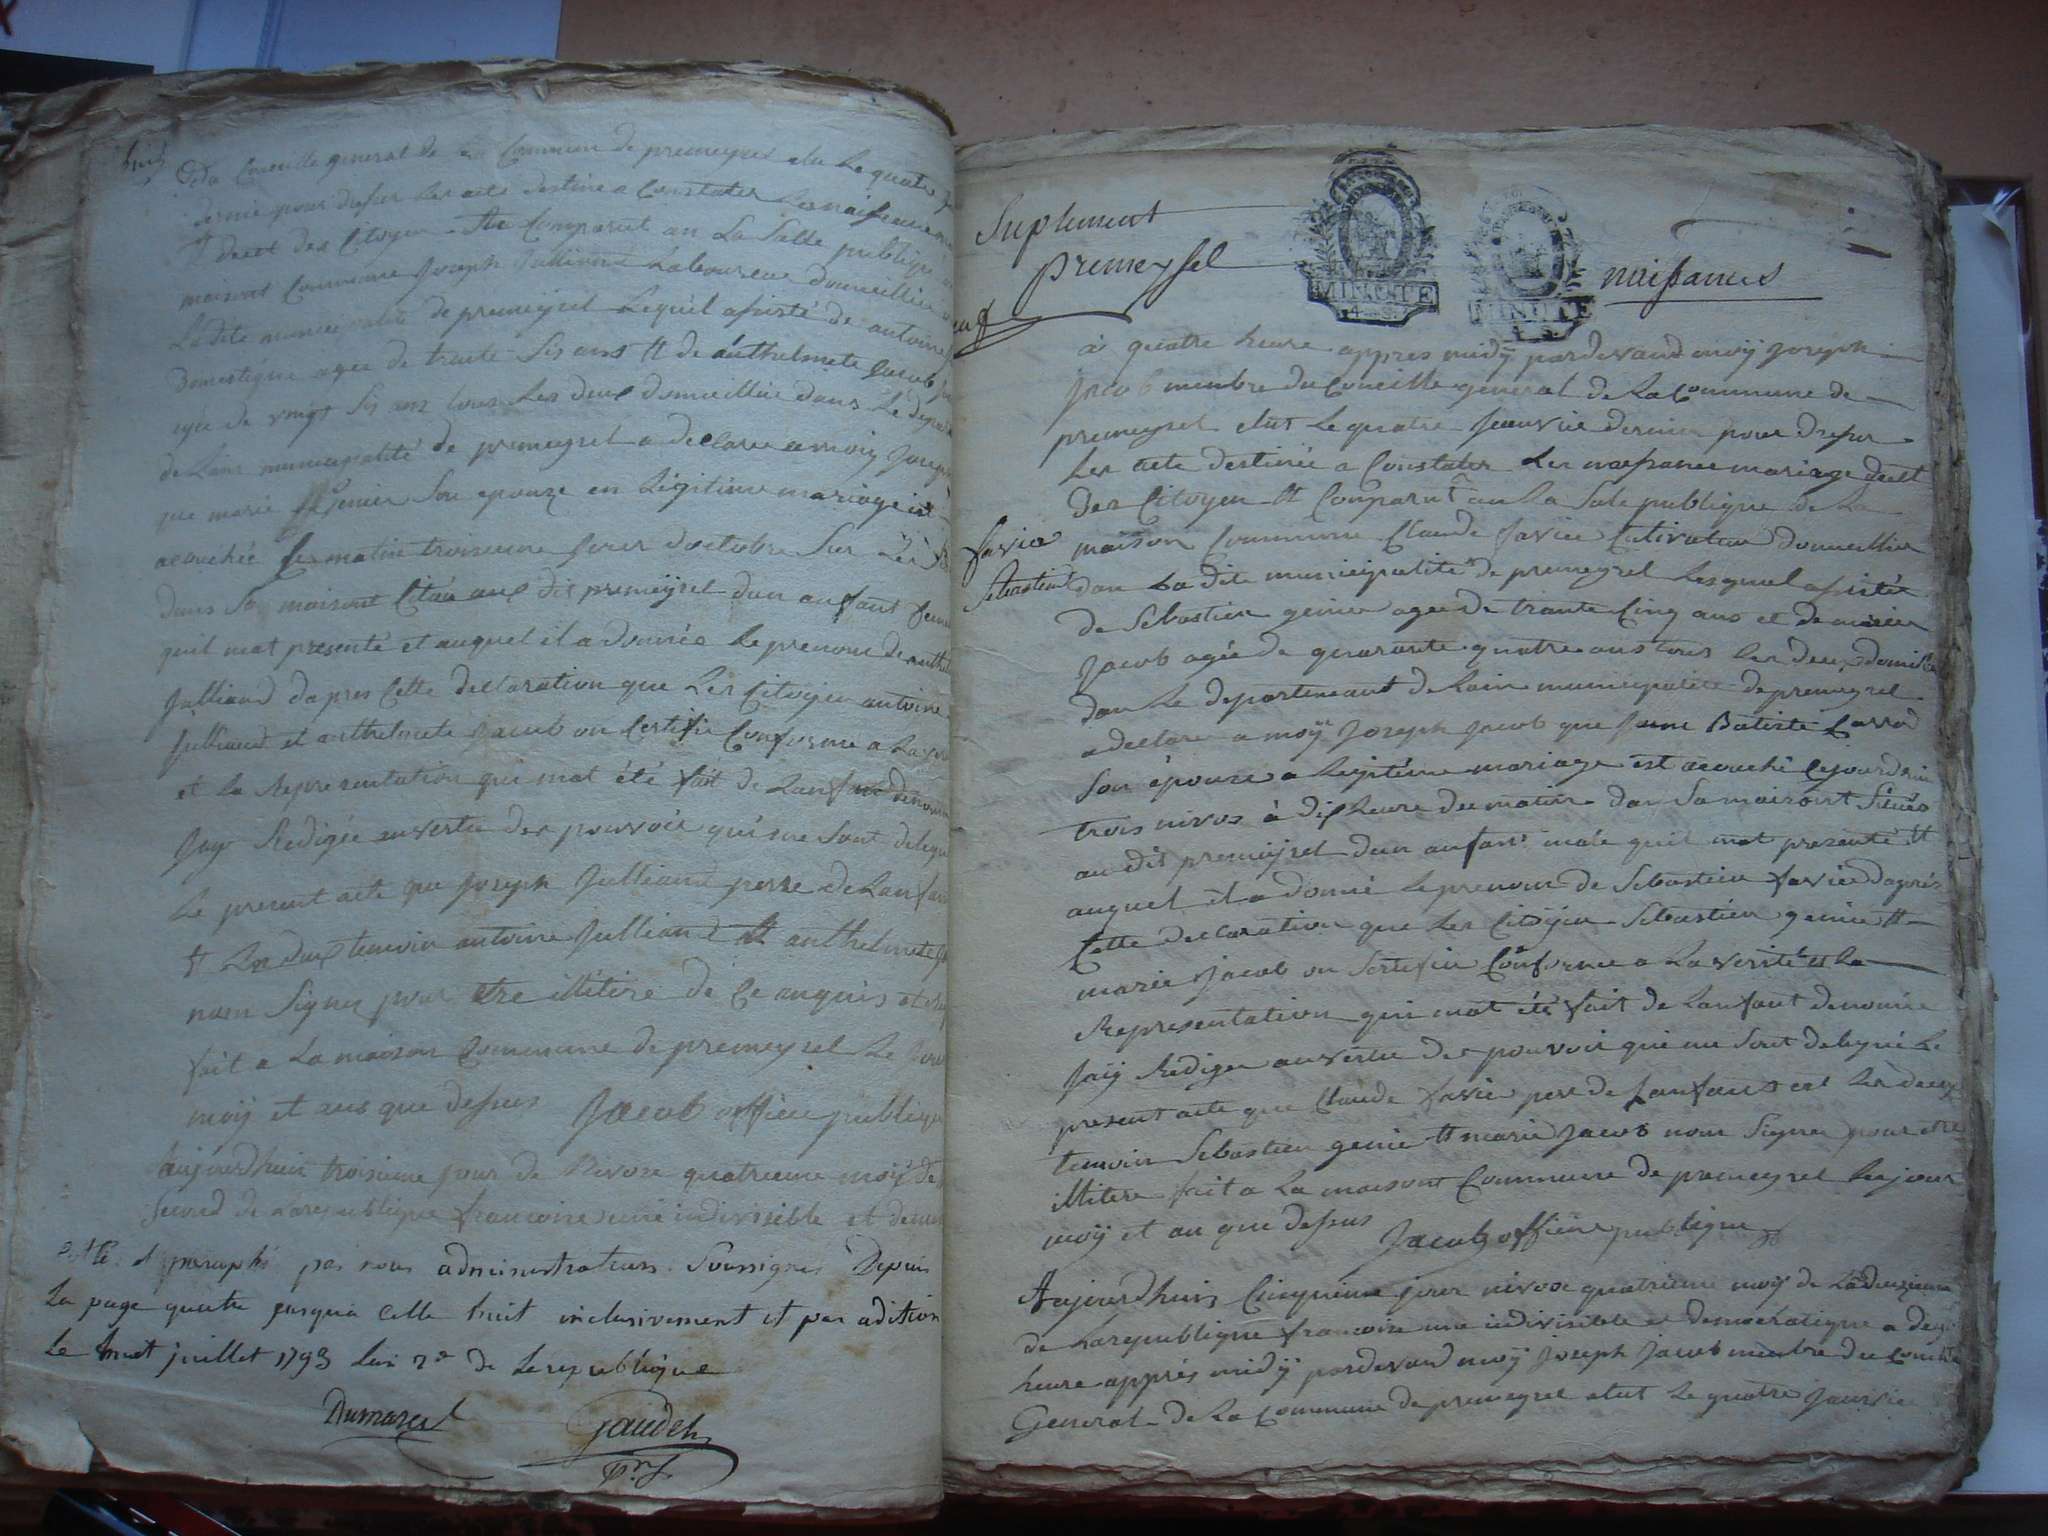 huit
du Conseille general de la Commune de premeysel elu Le quatre
dernie pour dresser Les acte destine a Constater Les naissance
et decet des Citoyen Ate Comparut an La Salle publique
maisont Commune Joseph Julliand Laboureur domeillier
La dite municipalite de premeysel Lequel assisté de antoine
domestique agee de trante Sis ans tt de anthelmete Jacob
agee de vingt Sis ans tous Les deux domeillie dans Le depa
de Lain municipalité de premeysel a declare a moiy Joseph
que marie genier Son epouze en Legitime mariage est
acouchée Ce matin troisieme jour doctobre Sur Les
dans Sa maisont Citue aux dit premeysel dun anfant
quil mat presenté et auquel il a donnée Le prenom de anthel
Julliand dapres Cette declaration que Les Citoyen antoine
Julliand et anthelmete Jacob on Certifie Conforme a La
et la Representation qui mat été fait de Lanfant denom
Jay Redigée anvertu des pouvoir qui me Sont delegu
Le present acte que Joseph Julliand perre de Lanfan
tt Les deux temoin antoine Julliand tt anthelmete
nom Signer pour etre illitere de Ce anquis et
fait a La maison Commune de premeysel Le
moiy et ans que dessus Jacob officie publique
Aujourdhuis troisieme jour de Nivoze quatrieme moiy de
Second de La republique francoise une indivisible et
Cotté et paraphé par nous administrateurs Soussignes Depuis
La page quatre jusqua Celle huit inclusivement et par adition
Le huit juillet 1793 Lan 2e de La republique
Dumarest Gaudet
Suplement
premeysel
MINUTE
4 S.
MINUTE
4 S.
naissances
neuf
à quatre heure appres midÿ pardevand moiÿ Joseph
Jacob membre du Conseille general de La Commune de
premeysel elut Le quatre Janvie dernier pour dresser
Les acte destinée a Constater Les naissance mariage decet
des Citoyen tt Comparut an La Sale publique de La
Favie
Sebastient
maison Commune Claude Favie Cultivateur domeillier
dan La dite municipalité de premeysel Lesquel assistée
de Sebastien genier agee de trante Cinq ans et de marie
Jacob agée de quarante quatre ans tous Les deux domilie
dan Le departemant de Lain municipalité de premeysel
a declare a moÿ Joseph Jacob que Jeane Batiste
Son épouze a Legitéme mariage est acouché Cejourdhui
trois nivos à dix heure du matin dan Sa maisont Situéé
au dit premeysel dun anfant male quil mat presenté tt
auquel il a donné Le prenom de Sebastien Favie dapres
Cette declaration que Les Citoyen Sebastien genier tt
marie Jacob on Sertifie Conforme a La verité et La
Representation qui mat été fait de Lanfant denomée
Jaiÿ Rediger anvertu des pouvoir qui me Sont delegué Le
present acte que Claude Favie pere de Lanfant et Les deux
temoin Sebastien genie tt marie Jacob nom Signer pour etre
illitere fait a La maisont Commune de premeysel Les jour
moiÿ et an que dessus Jacob officie publique
Aujourdhuis Cinquieme jour nivose quatrieme moiÿ de La deuzieme
de La republique francoise une indivisible et democratique a deux
heure apprés midÿ pardevand moiÿ Joseph Jacob membre du Conseille
General de La Commune de premeysel elut Le quatre Janvie